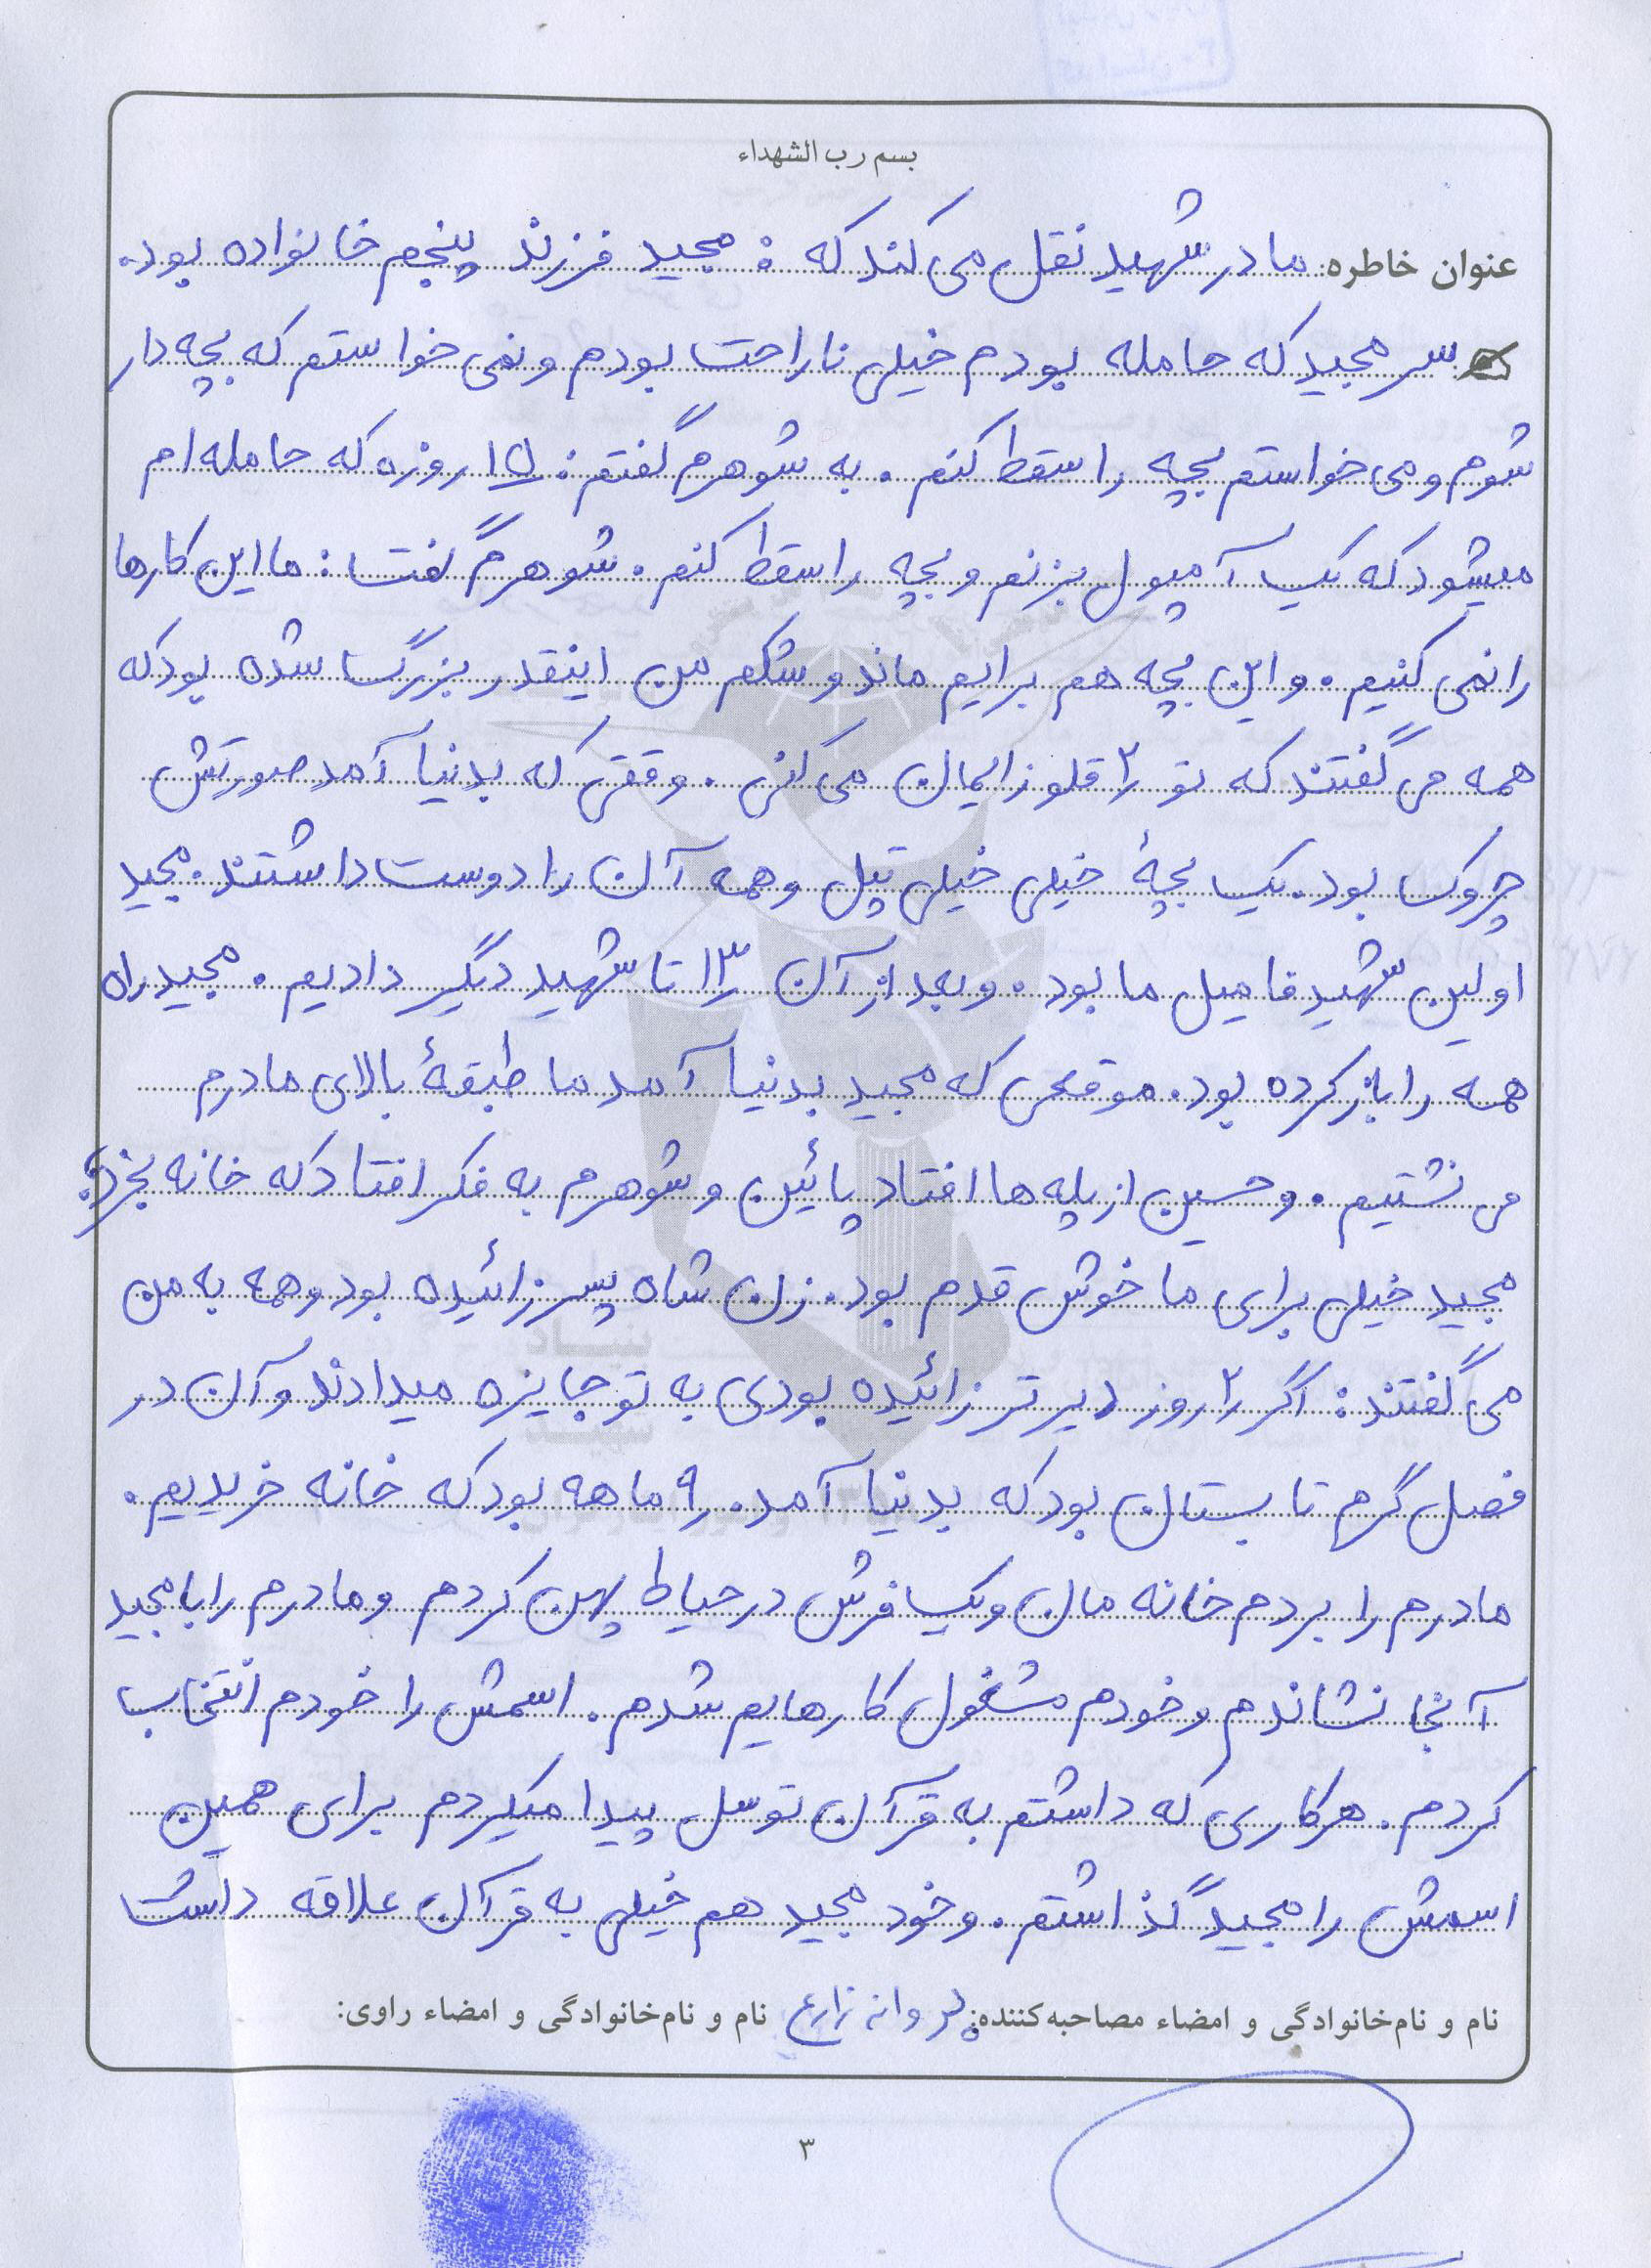 بسم رب الشهداء
عنوان خاطره مادر شهید نقل می کند که : مجید فرزند پنجم خانواده بود.
سر مجید که حامله بودم خیلی ناراحت بودم و نمی خواستم که بچه دار
شوم و می خواستم بچه را سقط کنم . به شوهرم گفتم : ۱۵ روزه که حامله ام
میشود که یک آمپول بزنم و بچه را سقط کنم . شوهرم گفت : ما این کارها
را نمی کنیم . و این بچه هم برایم ماند و شکم من اینقدر بزرگ شده بود که
همه می گفتند که تو ۲ قلو زایمان می کنی . وقتی که بدنیا آمد صورتش
چروک بود . یک بچۀ خیلی خیلی تپل و همه آن را دوست داشتند . مجید
اولین شهید فامیل ما بود . و بعد از آن ۱۳ تا شهید دیگر دادیم . مجید راه
همه را باز کرده بود . موقعی که مجید بدنیا آمد ما طبقۀ بالای مادرم
می نشتیم . و حسین از پله ها افتاد پائین و شوهرم به فکر افتاد که خانه بخرد .
مجید خیلی برای ما خوش قدم بود . زن شاه پسر زائیده بود و همه به من
می گفتند : اگر ۲ روز دیرتر زائیده بودی به تو جایزه میدادند و آن در
فصل گرم تابستان بود که بدنیا آمد . ۹ ماهه بود که خانه خریدیم .
مادرم را بردم خانه مان و یک فرش در حیاط پهن کردم و مادرم را با مجید
آنجا نشاندم و خودم مشغول کارهایم شدم . اسمش را خودم انتخاب
کردم . هر کاری که داشتم به قرآن توسل پیدا میکردم برای همین
اسمش را مجید گذاشتم . و خود مجید هم خیلی به قرآن علاقه داشت
نام و نام‌خانوادگی و امضاء مصاحبه‌کننده: پروانه زارع نام و نام‌خانوادگی و امضاء راوی:
۳